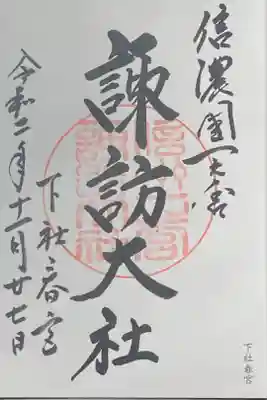 信濃國一之宮
諏訪大社
下社春宮
令和二年十一月廿七日
下社春宮